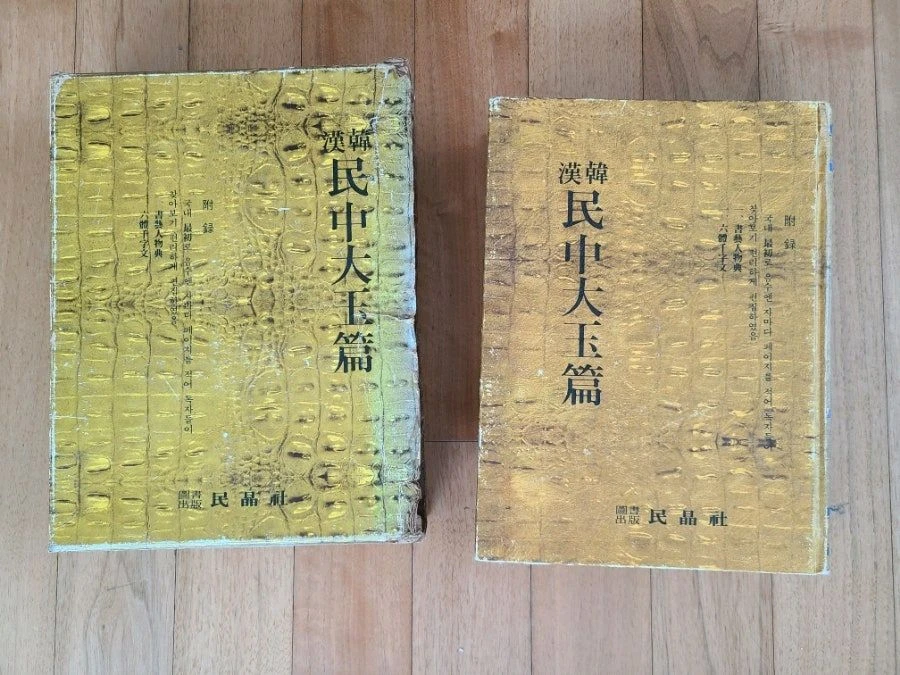 漢韓
民中大玉篇
附錄
국내 最初로 음부엔 자마다 페이지를 적어 독자들이
찾아보기 편리하게 편집하였음
書藝人物典
六體千字文
圖書
出版
民晶社
漢韓
民中大玉篇
附錄
국내 最初로 음부엔 자마다 페이지를 적어 독자들이
찾아보기 편리하게 편집하였음
一、書藝人物典
六體千字文
圖書
出版
民晶社